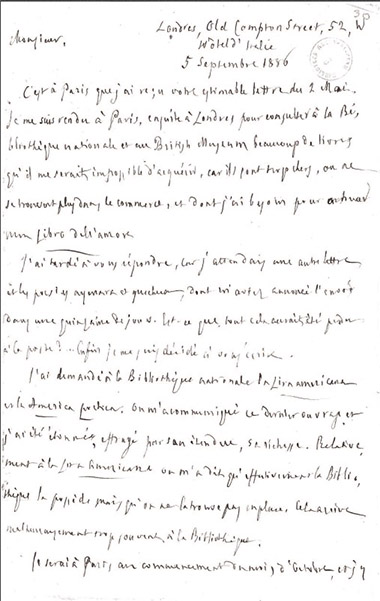 Londres, Old Compton Street, 52, W
Monsieur, Hôtel d'Italie
5 Septembre 1886
C'est à Paris que j'ai reçu votre estimable lettre du 2 Mai.
Je me suis rendu à Paris, ensuite à Londres pour consulter à la Bi-
bliothèque nationale et au British Museum beaucoup de livres
qu'il me serait impossible d'acquérir, car ils sont trop chers, ou ne
se trouvent plus dans le commerce, et dont j'ai besoin pour
mon Libro dell'amore
J'ai tardé à vous répondre, car j'attendais une autre lettre
et les poésies aymara et quechua, dont vous m'avez annoncé l'envoi
dans une quinzaine de jours. Est-ce que tout cela aurait été perdu
à la poste? .. Enfin je me suis décidé à vous écrire.
J'ai demandé à la Bibliothèque nationale la Lira americana
et la America poetica. On m'a communiqué ce dernier ouvrage, et
j'ai été étonné, effrayé par son étendue, sa richesse. Relative
ment à la Lira Americana on m'a dit qu'effectivement la Biblio
thèque la possède mais qu'on ne la trouve pas en place. Cela arrive
malheureusement trop souvent à la Bibliothèque.
Je serai à Paris au commencement du mois d'Octobre, et j'y